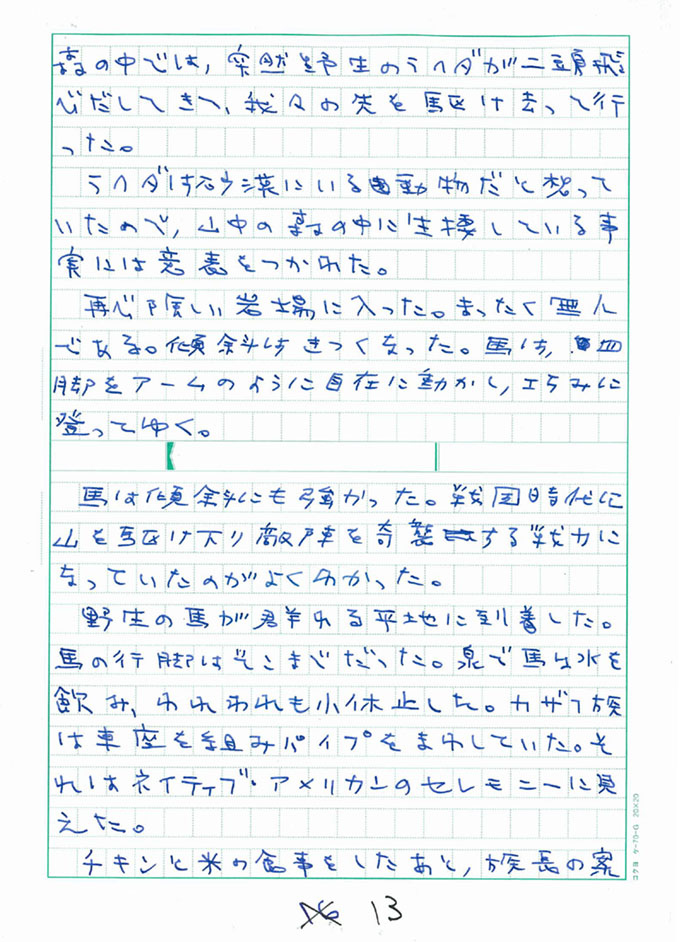 森の中では、突然野生のラクダが二頭飛
びだしてきて、我々の先を駆け去って行
った。
ラクダは砂漠にいる動物だと想って
いたので、山中の森の中に生棲している事
実には意表をつかれた。
再び険しい岩場に入った。まったく無人
である。傾斜はきつくなった。馬は、四
脚をアームのように自在に動かし、巧みに
登ってゆく。
馬は傾斜にも強かった。戦国時代に
山を駆け下り敵陣を奇襲する戦力に
なっていたのがよくわかった。
野生の馬が群れる平地に到着した。
馬の行脚はそこまでだった。泉で馬は水を
飲み、われわれも小休止した。カザフ族
は車座を組みパイプをまわしていた。そ
れはネイティブ・アメリカンのセレモニーに見
えた。
チキンと米の食事をしたあと、族長の案
コクヨ ケ-70-G 20×20
13